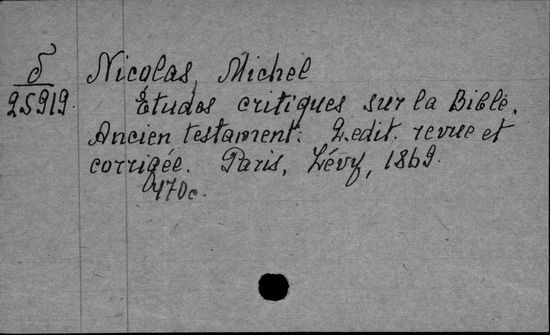 δ
25919.
Nicolas, Michel
Etudes critiques sur la Bible.
Ancien testament. 2. edit. revue et
corrigée. Paris, Lévy, 1869.
470c.